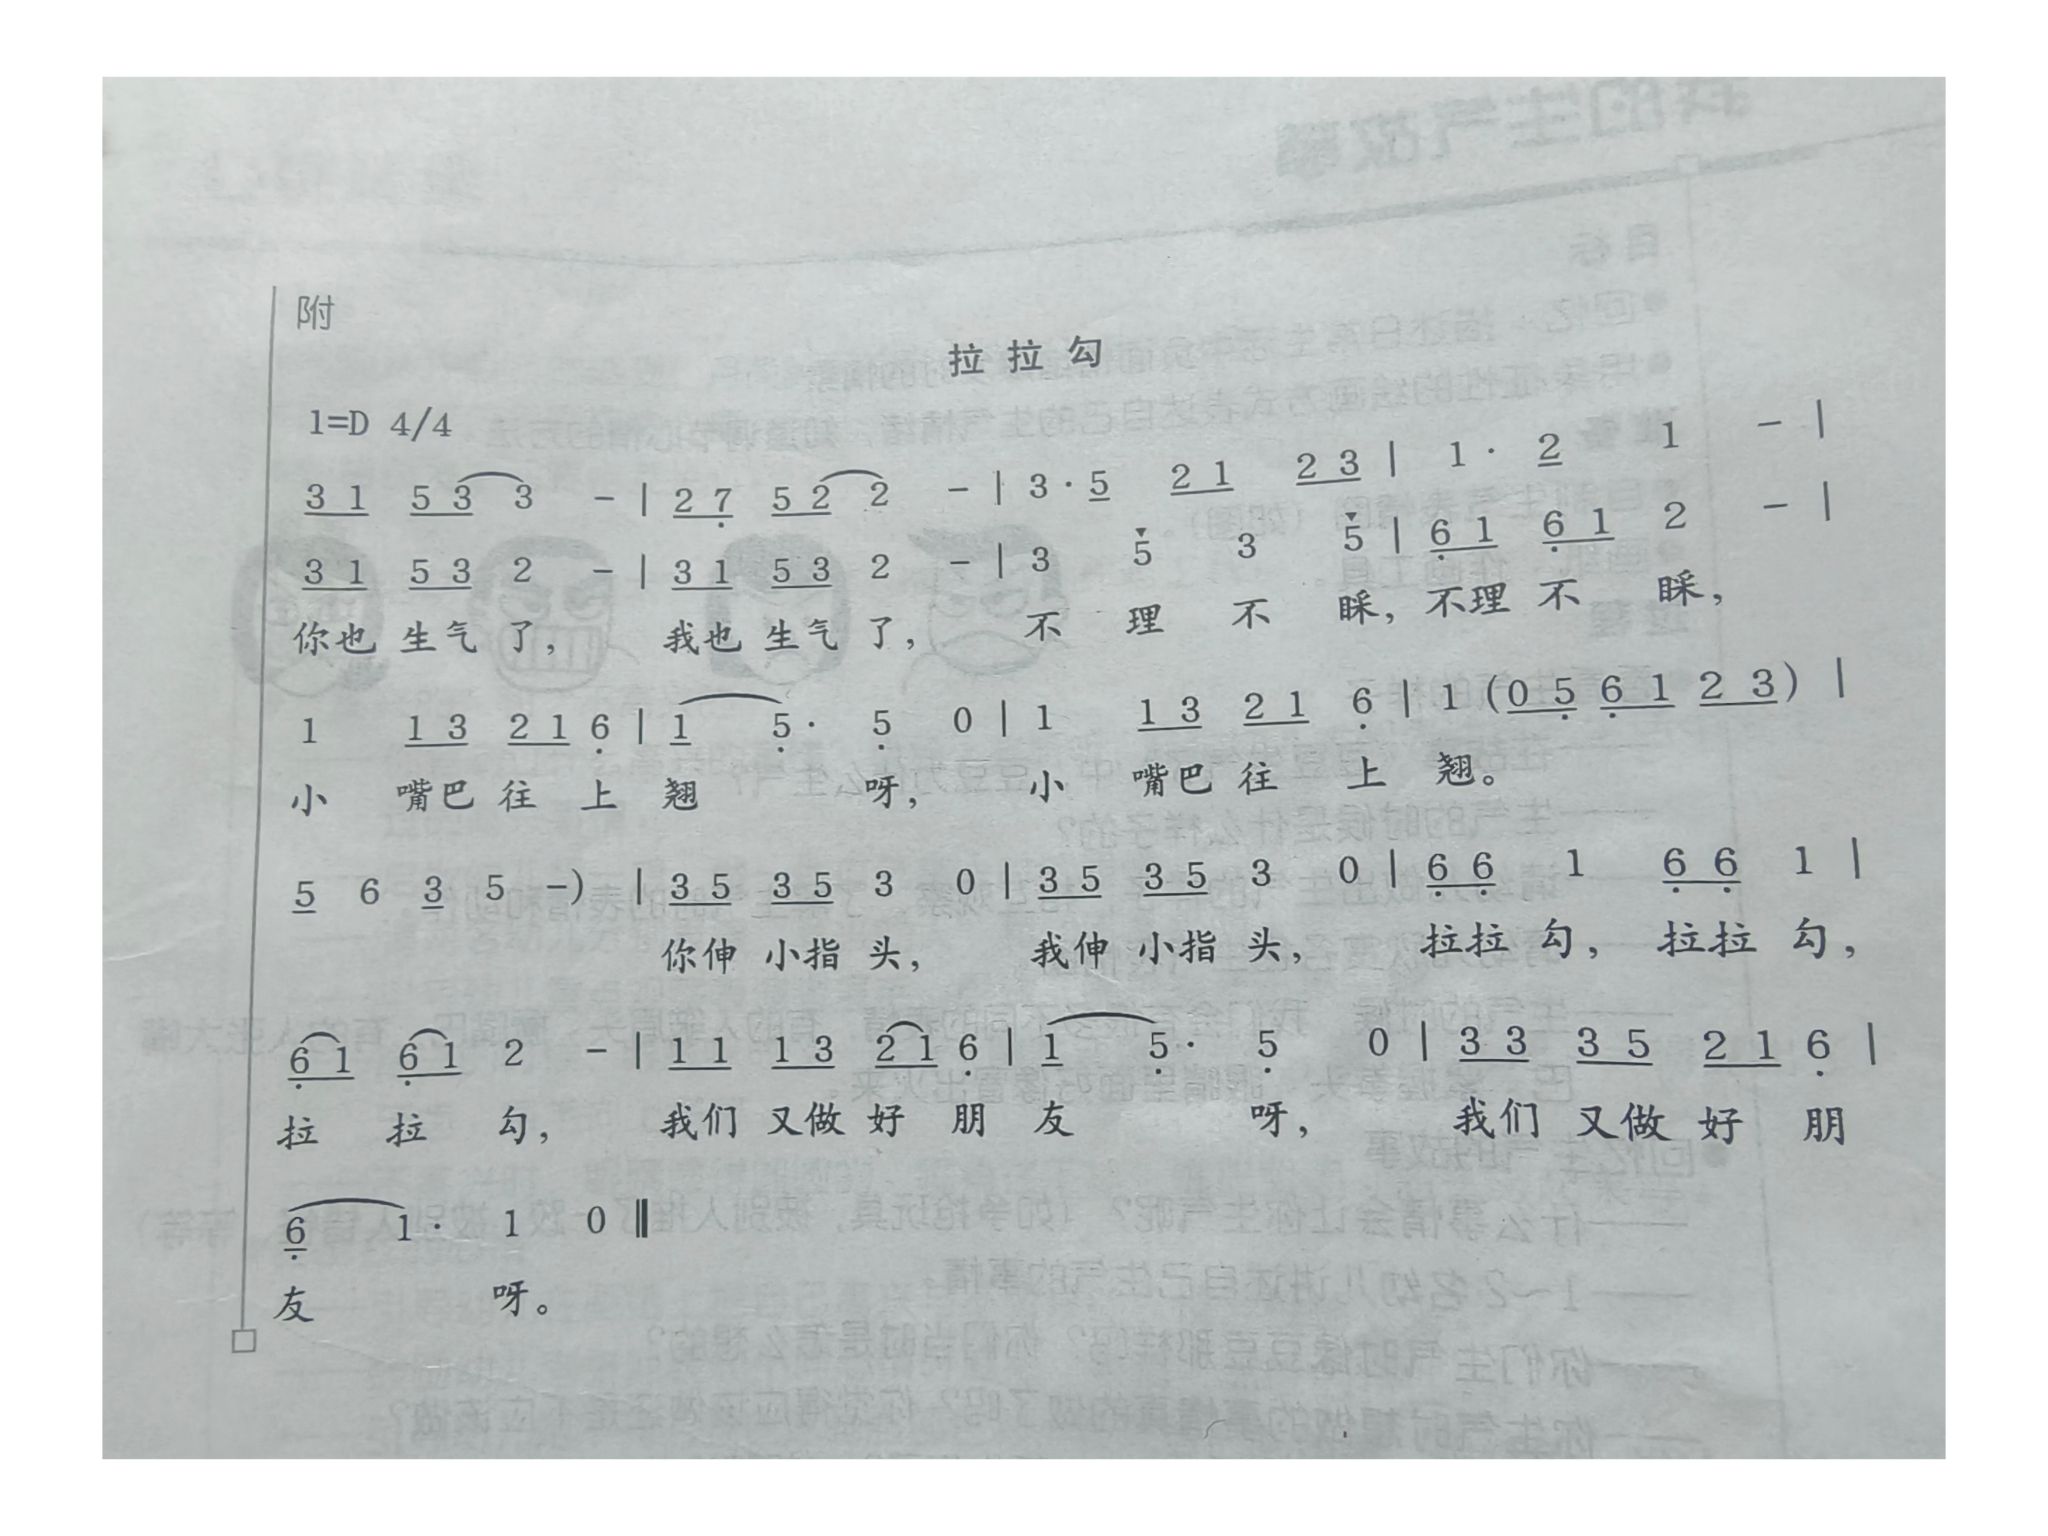 附
拉拉勾
1=D 4/4
3 1 5 3 3 - | 2 7 5 2 2 - | 3 · 5 2 1 2 3 | 1 · 2 1 - |
3 1 5 3 2 - | 3 1 5 3 2 - | 3 5 3 5 | 6 1 6 1 2 - |
你也 生气 了, 我也 生气 了, 不 理 不 睬, 不理 不 睬,
1 1 3 2 1 6 | 1 5 · 5 0 | 1 1 3 2 1 6 | 1 (0 5 6 1 2 3) |
小 嘴巴 往 上 翘 呀, 小 嘴巴 往 上 翘。
5 6 3 5 -) | 3 5 3 5 3 0 | 3 5 3 5 3 0 | 6 6 1 6 6 1 |
你伸 小指 头, 我伸 小指 头, 拉拉 勾, 拉拉 勾,
6 1 6 1 2 - | 1 1 1 3 2 1 6 | 1 5 · 5 0 | 3 3 3 5 2 1 6 |
拉 拉 勾, 我们 又做 好 朋 友 呀, 我们 又做 好 朋
6 1 · 1 0 ‖
友 呀。